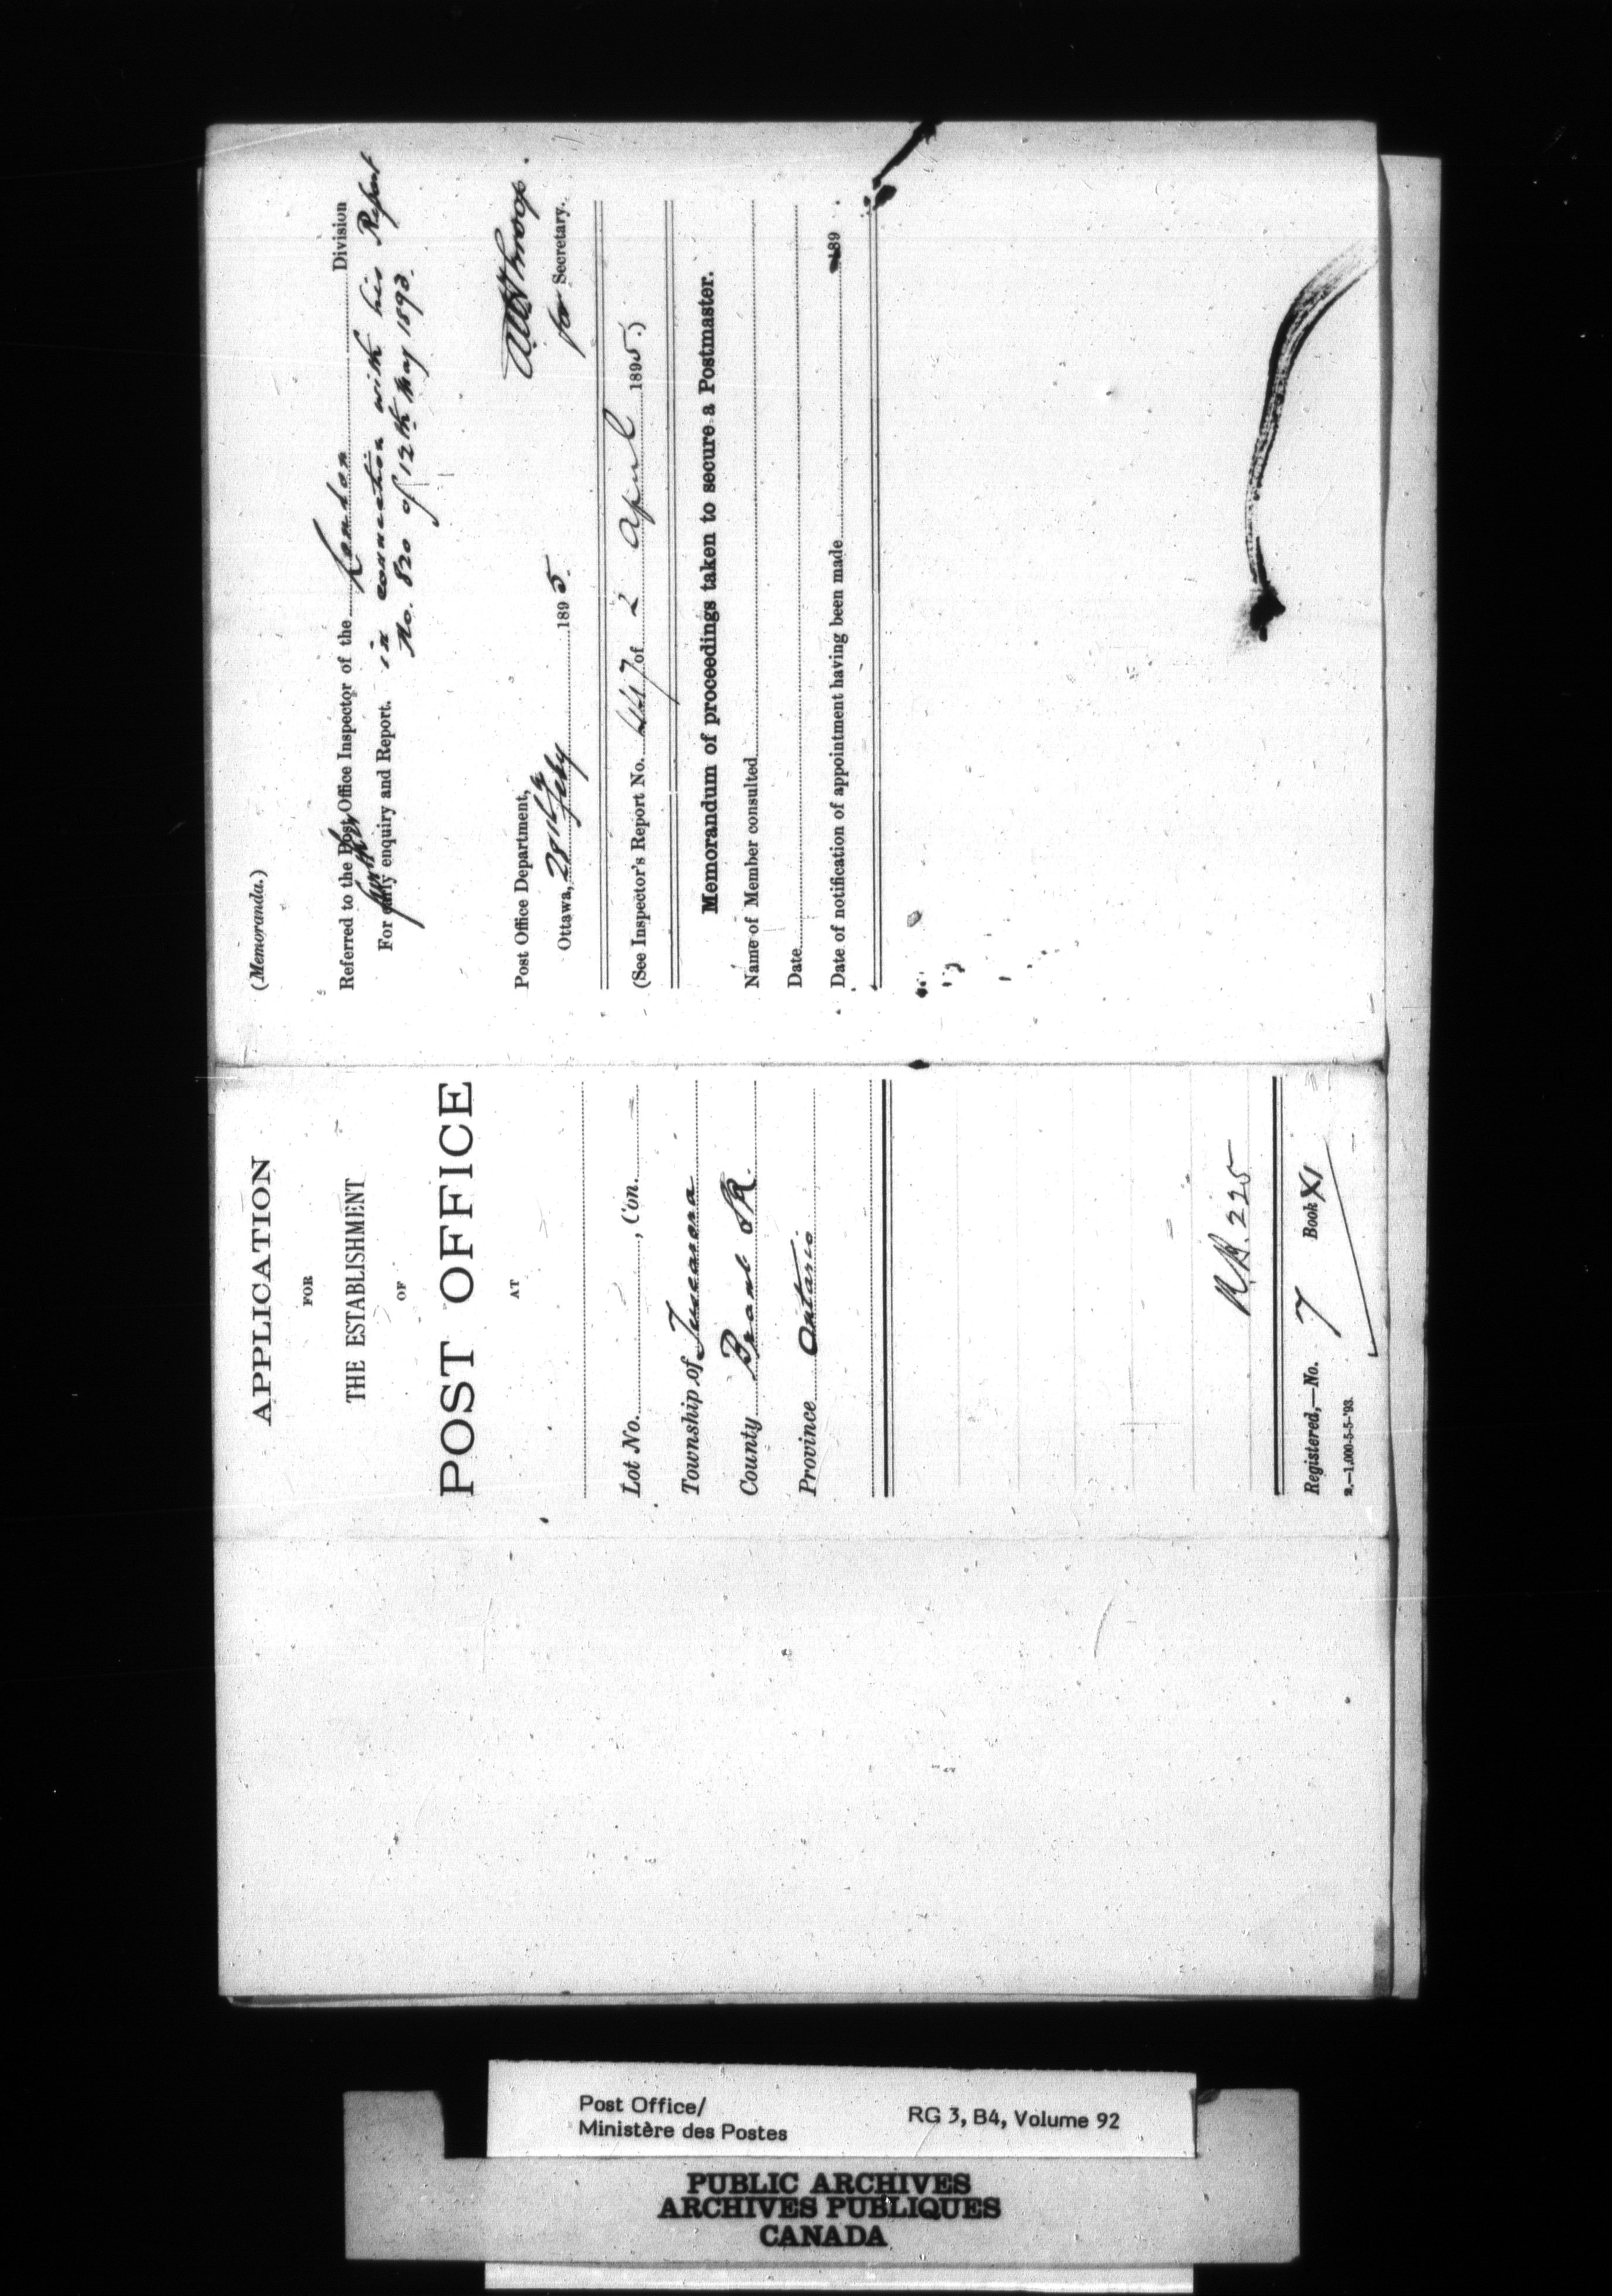 APPLICATION
FOR
THE ESTABLISHMENT
OF
POST OFFICE
AT
Lot No. , Con.
Township of Tuscarora
County Brant S.R.
Province Ontario
R.B. 225
Registered,—No. 7 Book XI
2.—1,000-5-5-'93.
(Memoranda.)
Referred to the Post Office Inspector of the London Division
further
For early enquiry and Report. in connection with his Report
No. 820 of 12th May 1893.
for Secretary.
Post Office Department,
Ottawa, 28th Feby 1895.
(See Inspector's Report No. 447 of 2 April 1895.)
Memorandum of proceedings taken to secure a Postmaster.
Name of Member consulted
Date
Date of notification of appointment having been made 189
Post Office/
Ministère des Postes
RG 3, B4, Volume 92
PUBLIC ARCHIVES
ARCHIVES PUBLIQUES
CANADA